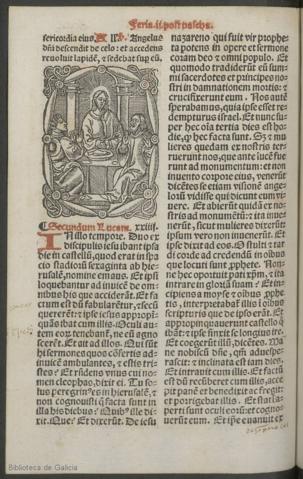 Feria.ii.post pascha.
sericordia eius. Angelus
dñi descendit de celo: et accedens
reuoluit lapidẽ, ⁊ sedebat sup eũ.
Secundum Lucam. xxiiij.
In illo tempore. Duo ex
discipulis iesu ibant ipsa
die in castellũ, quod erat in spa
cio stadiorũ sexaginta ab hie-
rusalẽ, nomine emaus. Et ipsi
loquebantur ad inuicẽ de om-
nibus his que acciderãt. Et fa
ctum est dũ fabularẽtur, ⁊ secũ
quererẽt: ⁊ ipse iesus appropi-
quãs ibat cum illis. Oculi au-
tem eorũ tenebant̃, ne eũ agno
scerẽt. Et ait ad illos. Qui sũt
hi sermones quos cõfertis ad-
inuicẽ ambulantes, ⁊ estis tri-
stes? Et rñdens vnus cui no-
men cleophas, dixit ei. Tu so-
lus peregrin⁹ es in hierusalẽ, ⁊
non cognouisti q̃ facta sunt in
illa his diebus? Quib⁹ ille di-
xit. Que? Et dixerũt. De iesu
nazareno qui fuit vir prophe-
ta potens in opere et sermone
coram deo ⁊ omni populo. Et
quomodo tradiderũt eũ sum-
mi sacerdotes et principes no-
stri in damnationem mortis: ⁊
crucifixerunt eum. Nos autẽ
sperabamus, quia ipse esset re-
dempturus israel. Et nunc su-
per hec oĩa tertia dies est ho-
die, q̃ hec facta sunt. Sz ⁊ mu
lieres quedam ex nostris ter-
ruerunt nos, que ante lucẽ fue
runt ad monumentum: et non
inuento corpore eius, venerũt
dicẽtes se etiam visionẽ ange-
lorũ vidisse qui dicunt eum vi-
uere. Et abierũt quidã ex no-
stris ad monumẽtũ: ⁊ ita inue
nerũt, sicut mulieres dixerũt
ipsum vero non inuenerũt. Et
ipse dixit ad eos. O stulti ⁊ tar
di corde ad credendũ in oĩbus
que locuti sunt pphete. Non-
ne hec oportuit pati xp̃m, ⁊ ita
intrare in gloriã suam? Et in-
cipiens a moyse ⁊ oĩbus pphe
tis, interpretabat̃ illis ĩ oĩbus
scripturis que de ipso erãt. Et
appropinquauerunt castello q̃
ibãt: ⁊ ipse finxit se longius ire.
Et coegerũt illũ, dicẽtes. Ma
ne nobiscũ dñe, qm̃ aduespe-
rascit: ⁊ inclinata est iam dies.
Et intrauit cum illis. Et factũ
est dũ recũberet cum illis, acce
pit panẽ et benedixit ac fregit:
et porrigebat illis. Et statĩ a-
perti sunt oculi eorũ: et cogno-
uerũt eum. Et ip̃e euanuit ex
Biblioteca de Galicia